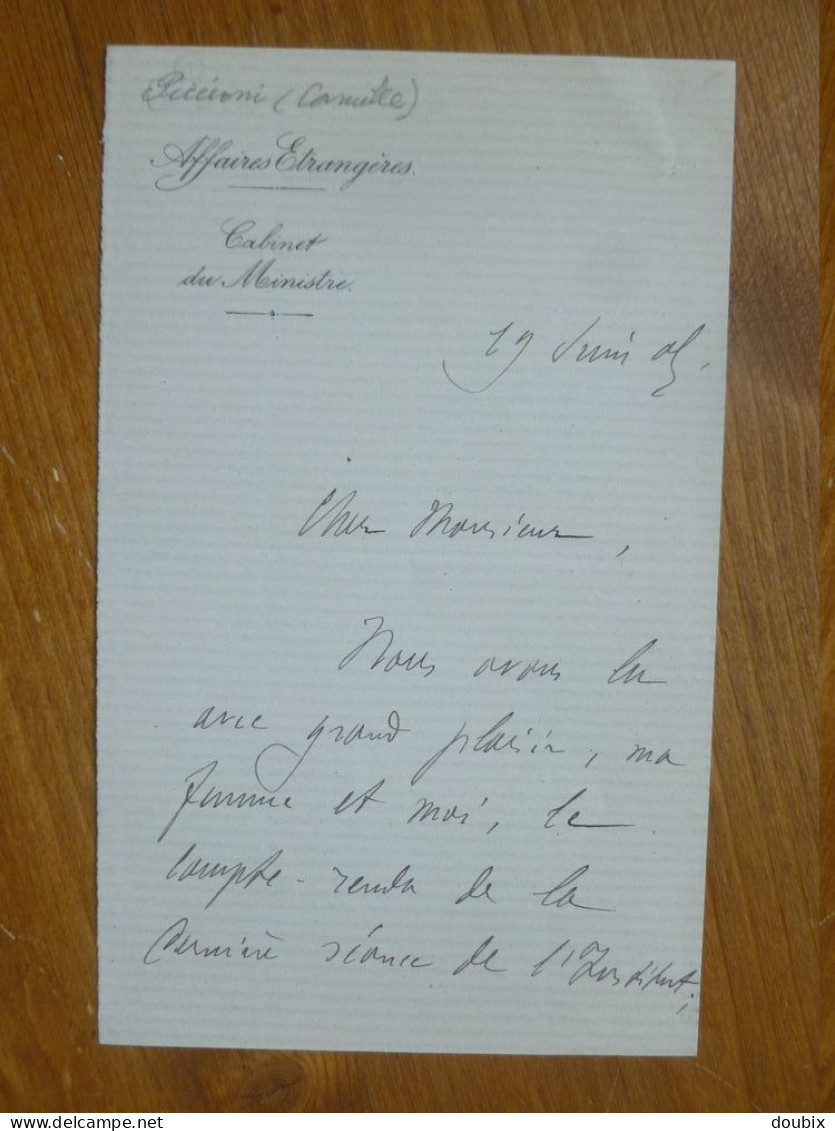 Piccioni (Camille)
Affaires Etrangères.
Cabinet
du Ministre.
19 Juin 05.
Cher Monsieur,
Nous avons lu
avec grand plaisir, ma
femme et moi, le
compte-rendu de la
dernière séance de l'Institut,
www.delcampe.net
doubix